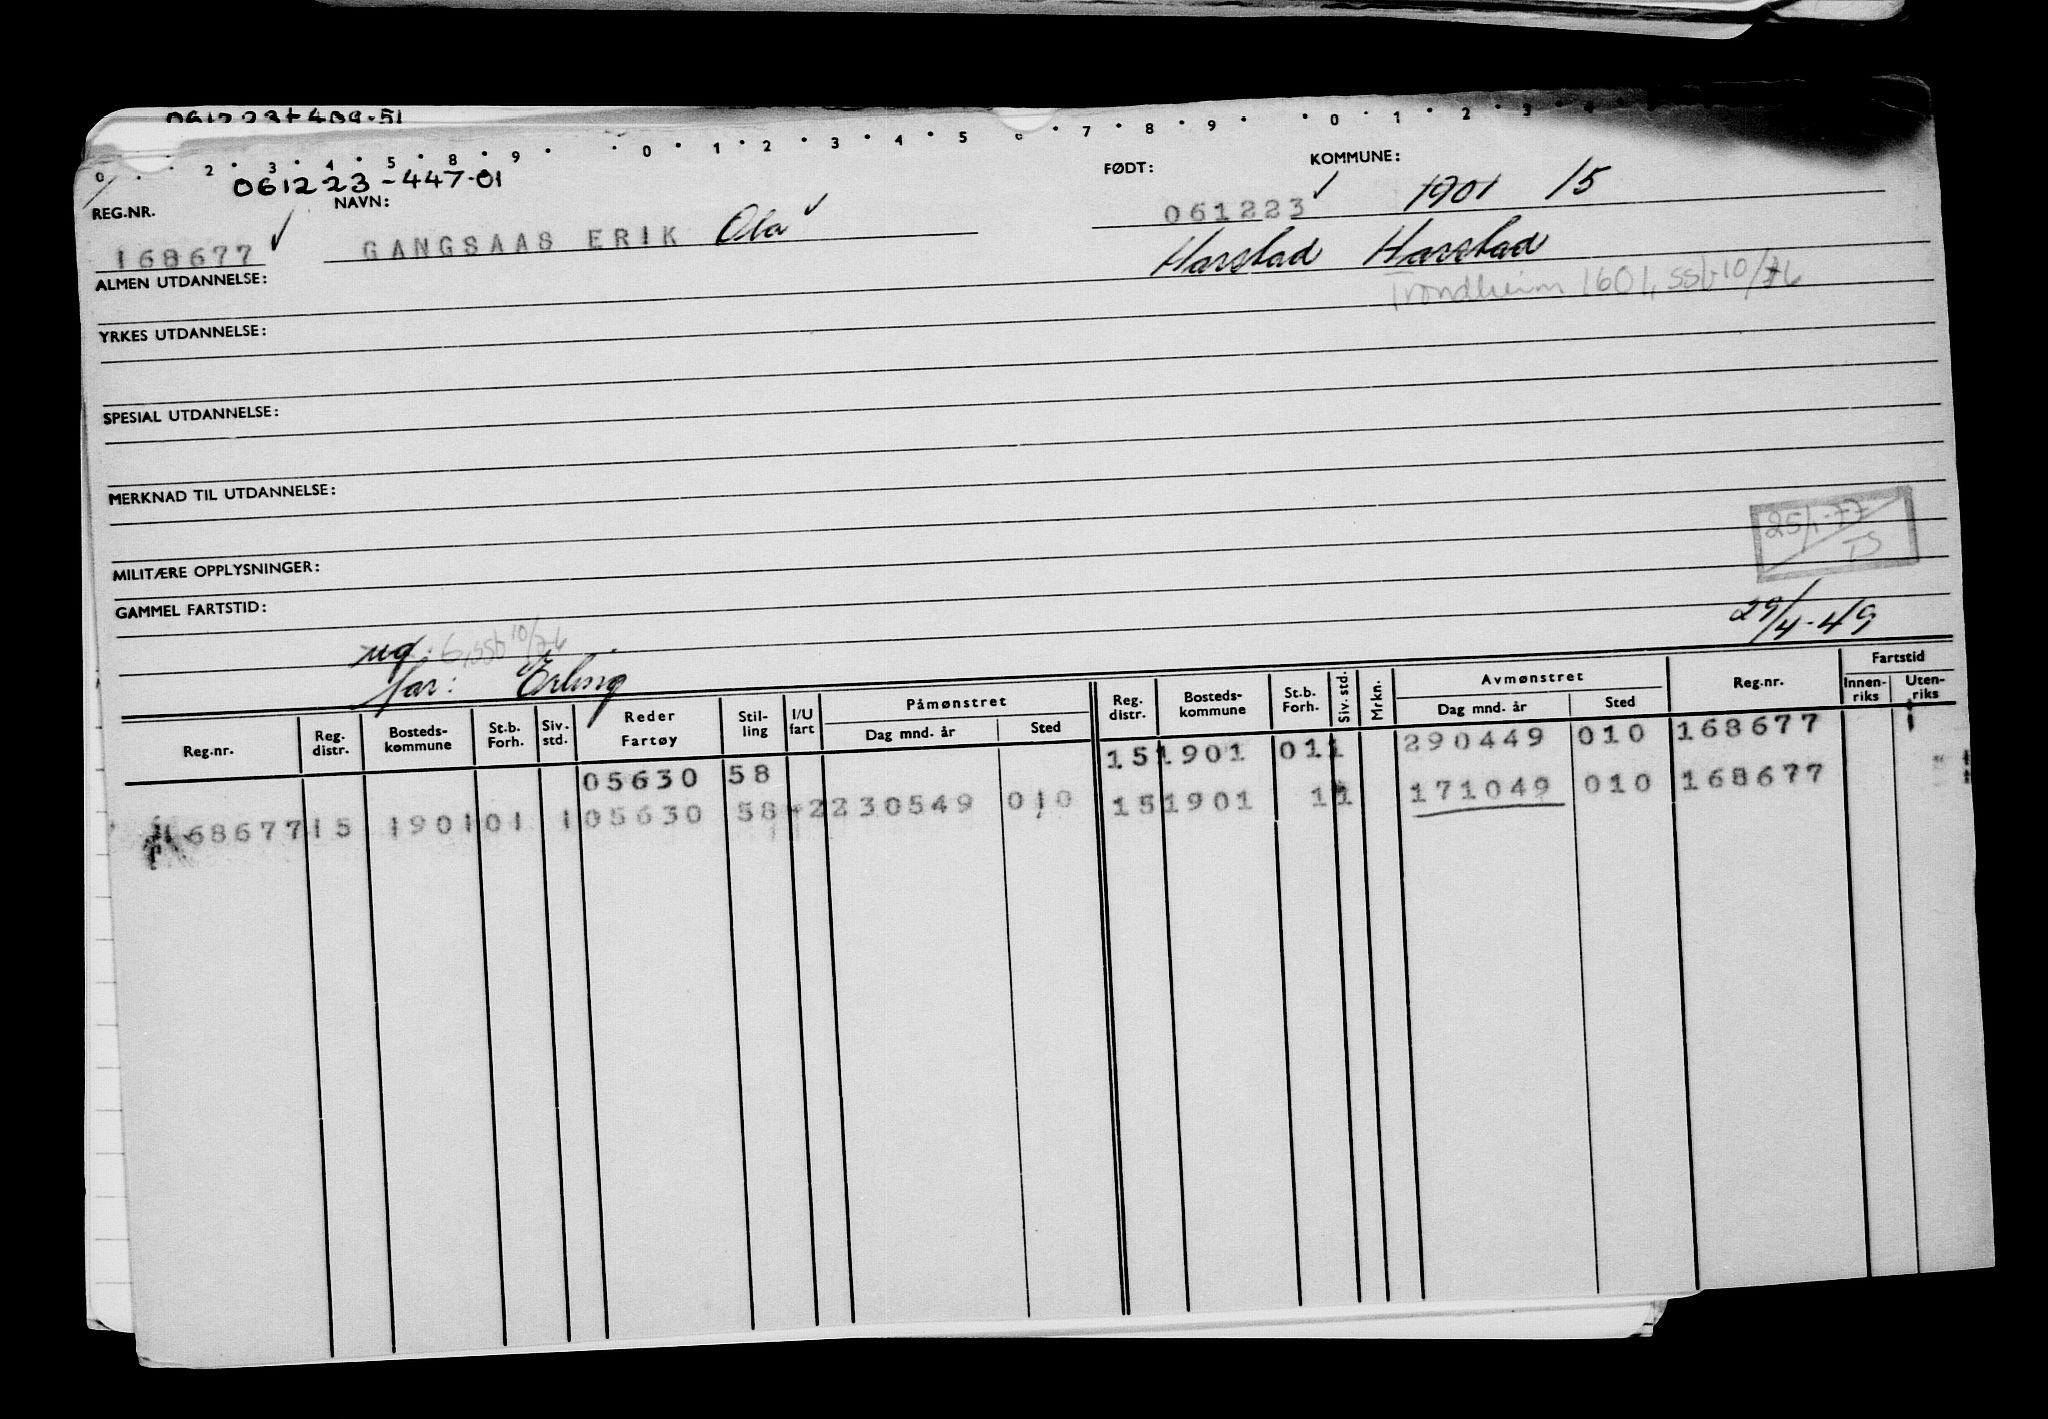 0 · · 2 · 3 · 4 · 5 · 8 · 9 · · 0 · 1 · 2 · 3 · 4 · 5 · 6 · 7 · 8 · 9 · · 0 · 1 · 2 · 3 · 4
061223-447-01
REG.NR. NAVN: FØDT: KOMMUNE:
168677 GANGSAAS ERIK Ola 061223 1901 15
Harstad Harstad
Trondheim 1601, ssb 10/76
ALMEN UTDANNELSE:
YRKES UTDANNELSE:
SPESIAL UTDANNELSE:
MERKNAD TIL UTDANNELSE:
25/1-77
TS
MILITÆRE OPPLYSNINGER:
GAMMEL FARTSTID:
29/4-49
ug. G, ssb 10/76
far: Erling
Reg.nr. Reg. distr. Bosteds-kommune St.b. Forh. Siv-std. Reder Fartøy Stil-ling I/U fart Påmønstret Dag mnd. år Sted Reg. distr. Bosteds-kommune St.b. Forh. Siv. std. Mrkn. Avmønstret Dag mnd. år Sted Reg.nr. Fartstid Innen-riks Uten-riks
05630 58 15 1901 01 1 290449 010 168677
168677 15 1901 01 1 05630 58 2 230549 010 15 1901 1 1 171049 010 168677